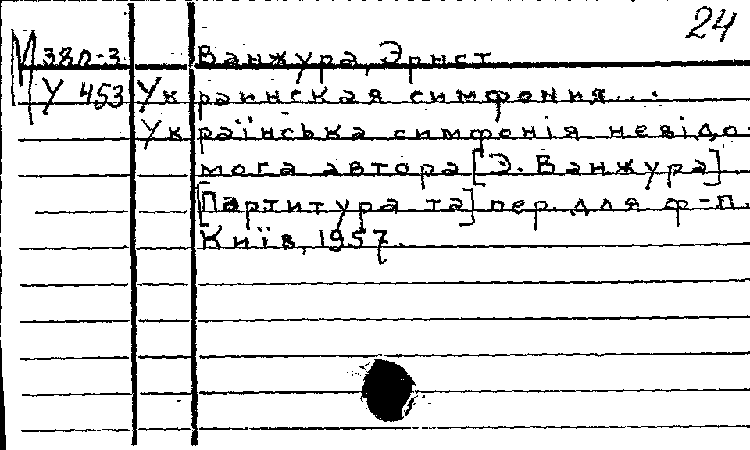 24
М 38п-3 Ванжура, Эрнст
У 453 Украинская симфония...
Українська симфонія невідо
мога автора [Э. Ванжура]
[Партитура та] пер. для ф-п.
Київ, 1957.